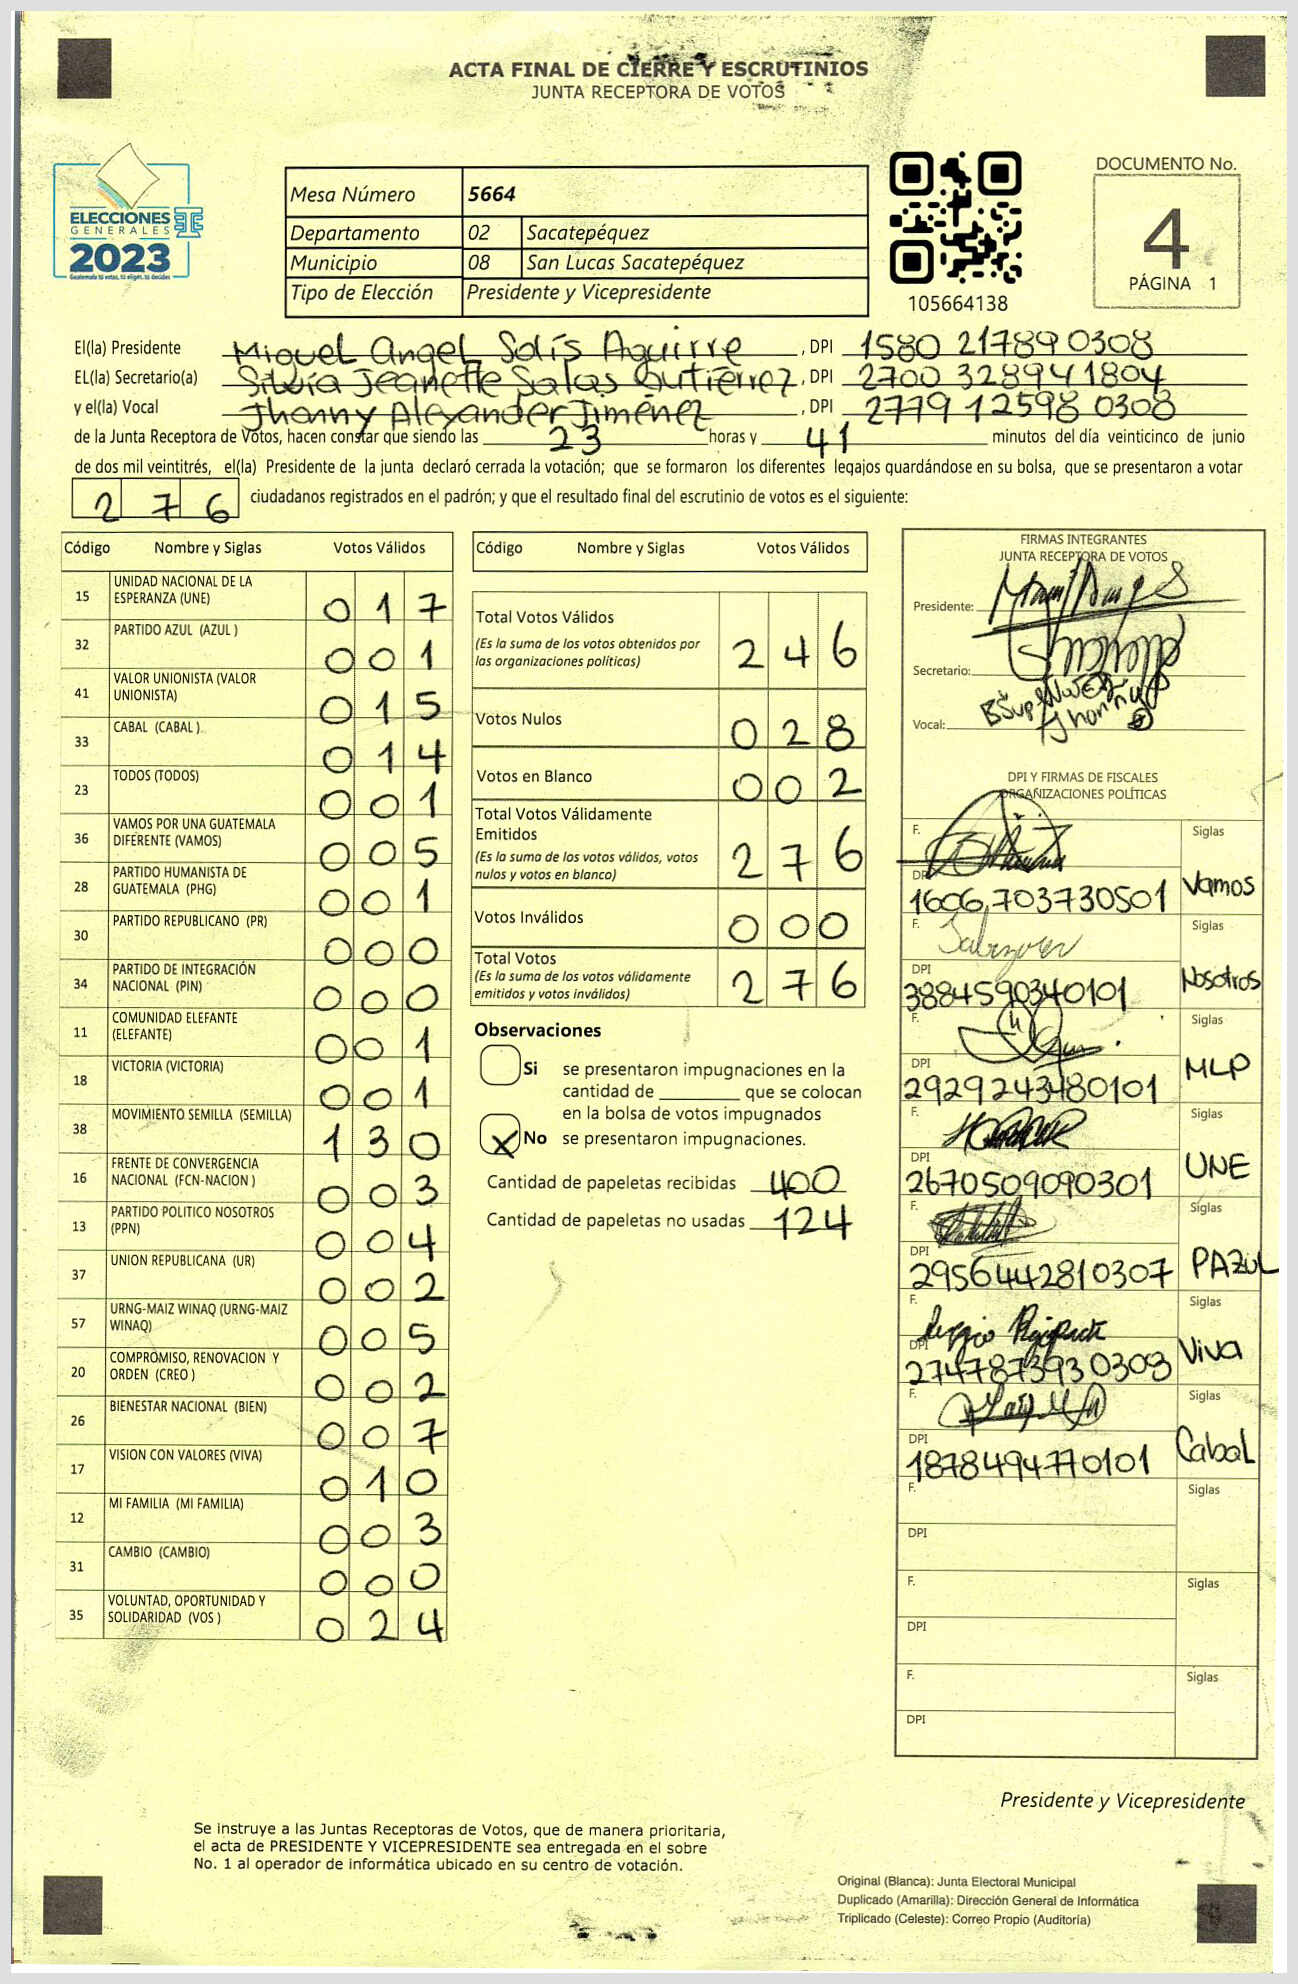 ACTA FINAL DE CIERRE Y ESCRUTINIOS
JUNTA RECEPTORA DE VOTOS
ELECCIONES
GENERALES
2023
Guatemala tú votas, tú eliges, tú decides
Mesa Número 5664
Departamento 02 Sacatepéquez
Municipio 08 San Lucas Sacatepéquez
Tipo de Elección Presidente y Vicepresidente
105664138
DOCUMENTO No.
4
PÁGINA 1
El(la) Presidente Miguel Angel Solís Aguirre, DPI 1580 21789 0308
EL(la) Secretario(a) Silvia Jeanette Salas Gutiérrez, DPI 2700 328941804
y el(la) Vocal Jhonny Alexander Jiménez, DPI 2779 12598 0308
de la Junta Receptora de Votos, hacen constar que siendo las 23 horas y 41 minutos del día veinticinco de junio
de dos mil veintitrés, el(la) Presidente de la junta declaró cerrada la votación; que se formaron los diferentes legajos guardándose en su bolsa, que se presentaron a votar
276 ciudadanos registrados en el padrón; y que el resultado final del escrutinio de votos es el siguiente:
Código Nombre y Siglas Votos Válidos
15 UNIDAD NACIONAL DE LA ESPERANZA (UNE) 017
32 PARTIDO AZUL (AZUL ) 001
41 VALOR UNIONISTA (VALOR UNIONISTA) 015
33 CABAL (CABAL ) 014
23 TODOS (TODOS) 001
36 VAMOS POR UNA GUATEMALA DIFERENTE (VAMOS) 005
28 PARTIDO HUMANISTA DE GUATEMALA (PHG) 001
30 PARTIDO REPUBLICANO (PR) 000
34 PARTIDO DE INTEGRACIÓN NACIONAL (PIN) 000
11 COMUNIDAD ELEFANTE (ELEFANTE) 001
18 VICTORIA (VICTORIA) 001
38 MOVIMIENTO SEMILLA (SEMILLA) 130
16 FRENTE DE CONVERGENCIA NACIONAL (FCN-NACION ) 003
13 PARTIDO POLITICO NOSOTROS (PPN) 004
37 UNION REPUBLICANA (UR) 002
57 URNG-MAIZ WINAQ (URNG-MAIZ WINAQ) 005
20 COMPROMISO, RENOVACION Y ORDEN (CREO ) 002
26 BIENESTAR NACIONAL (BIEN) 007
17 VISION CON VALORES (VIVA) 010
12 MI FAMILIA (MI FAMILIA) 003
31 CAMBIO (CAMBIO) 000
35 VOLUNTAD, OPORTUNIDAD Y SOLIDARIDAD (VOS ) 024
Código Nombre y Siglas Votos Válidos
Total Votos Válidos 246
(Es la suma de los votos obtenidos por las organizaciones políticas)
Votos Nulos 028
Votos en Blanco 002
Total Votos Válidamente Emitidos 276
(Es la suma de los votos válidos, votos nulos y votos en blanco)
Votos Inválidos 000
Total Votos 276
(Es la suma de los votos válidamente emitidos y votos inválidos)
Observaciones
Si se presentaron impugnaciones en la
cantidad de ________ que se colocan
en la bolsa de votos impugnados
X No se presentaron impugnaciones.
Cantidad de papeletas recibidas 400
Cantidad de papeletas no usadas 124
FIRMAS INTEGRANTES
JUNTA RECEPTORA DE VOTOS
Presidente:
Secretario:
Vocal: Jhonny
DPI Y FIRMAS DE FISCALES
ORGANIZACIONES POLÍTICAS
F. Siglas
DPI 1606 703730501 Vamos
F. Siglas
DPI 3884590340101 Nosotros
F. Siglas
DPI 2929243480101 MLP
F. Siglas
DPI 2670509090301 UNE
F. Siglas
DPI 2956442810307 PAZUL
F. Sergio Siglas
DPI 2747873930308 Viva
F. Siglas
DPI 1878494770101 Cabal
F. Siglas
DPI
F. Siglas
DPI
F. Siglas
DPI
Presidente y Vicepresidente
Se instruye a las Juntas Receptoras de Votos, que de manera prioritaria,
el acta de PRESIDENTE Y VICEPRESIDENTE sea entregada en el sobre
No. 1 al operador de informática ubicado en su centro de votación.
Original (Blanca): Junta Electoral Municipal
Duplicado (Amarilla): Dirección General de Informática
Triplicado (Celeste): Correo Propio (Auditoría)